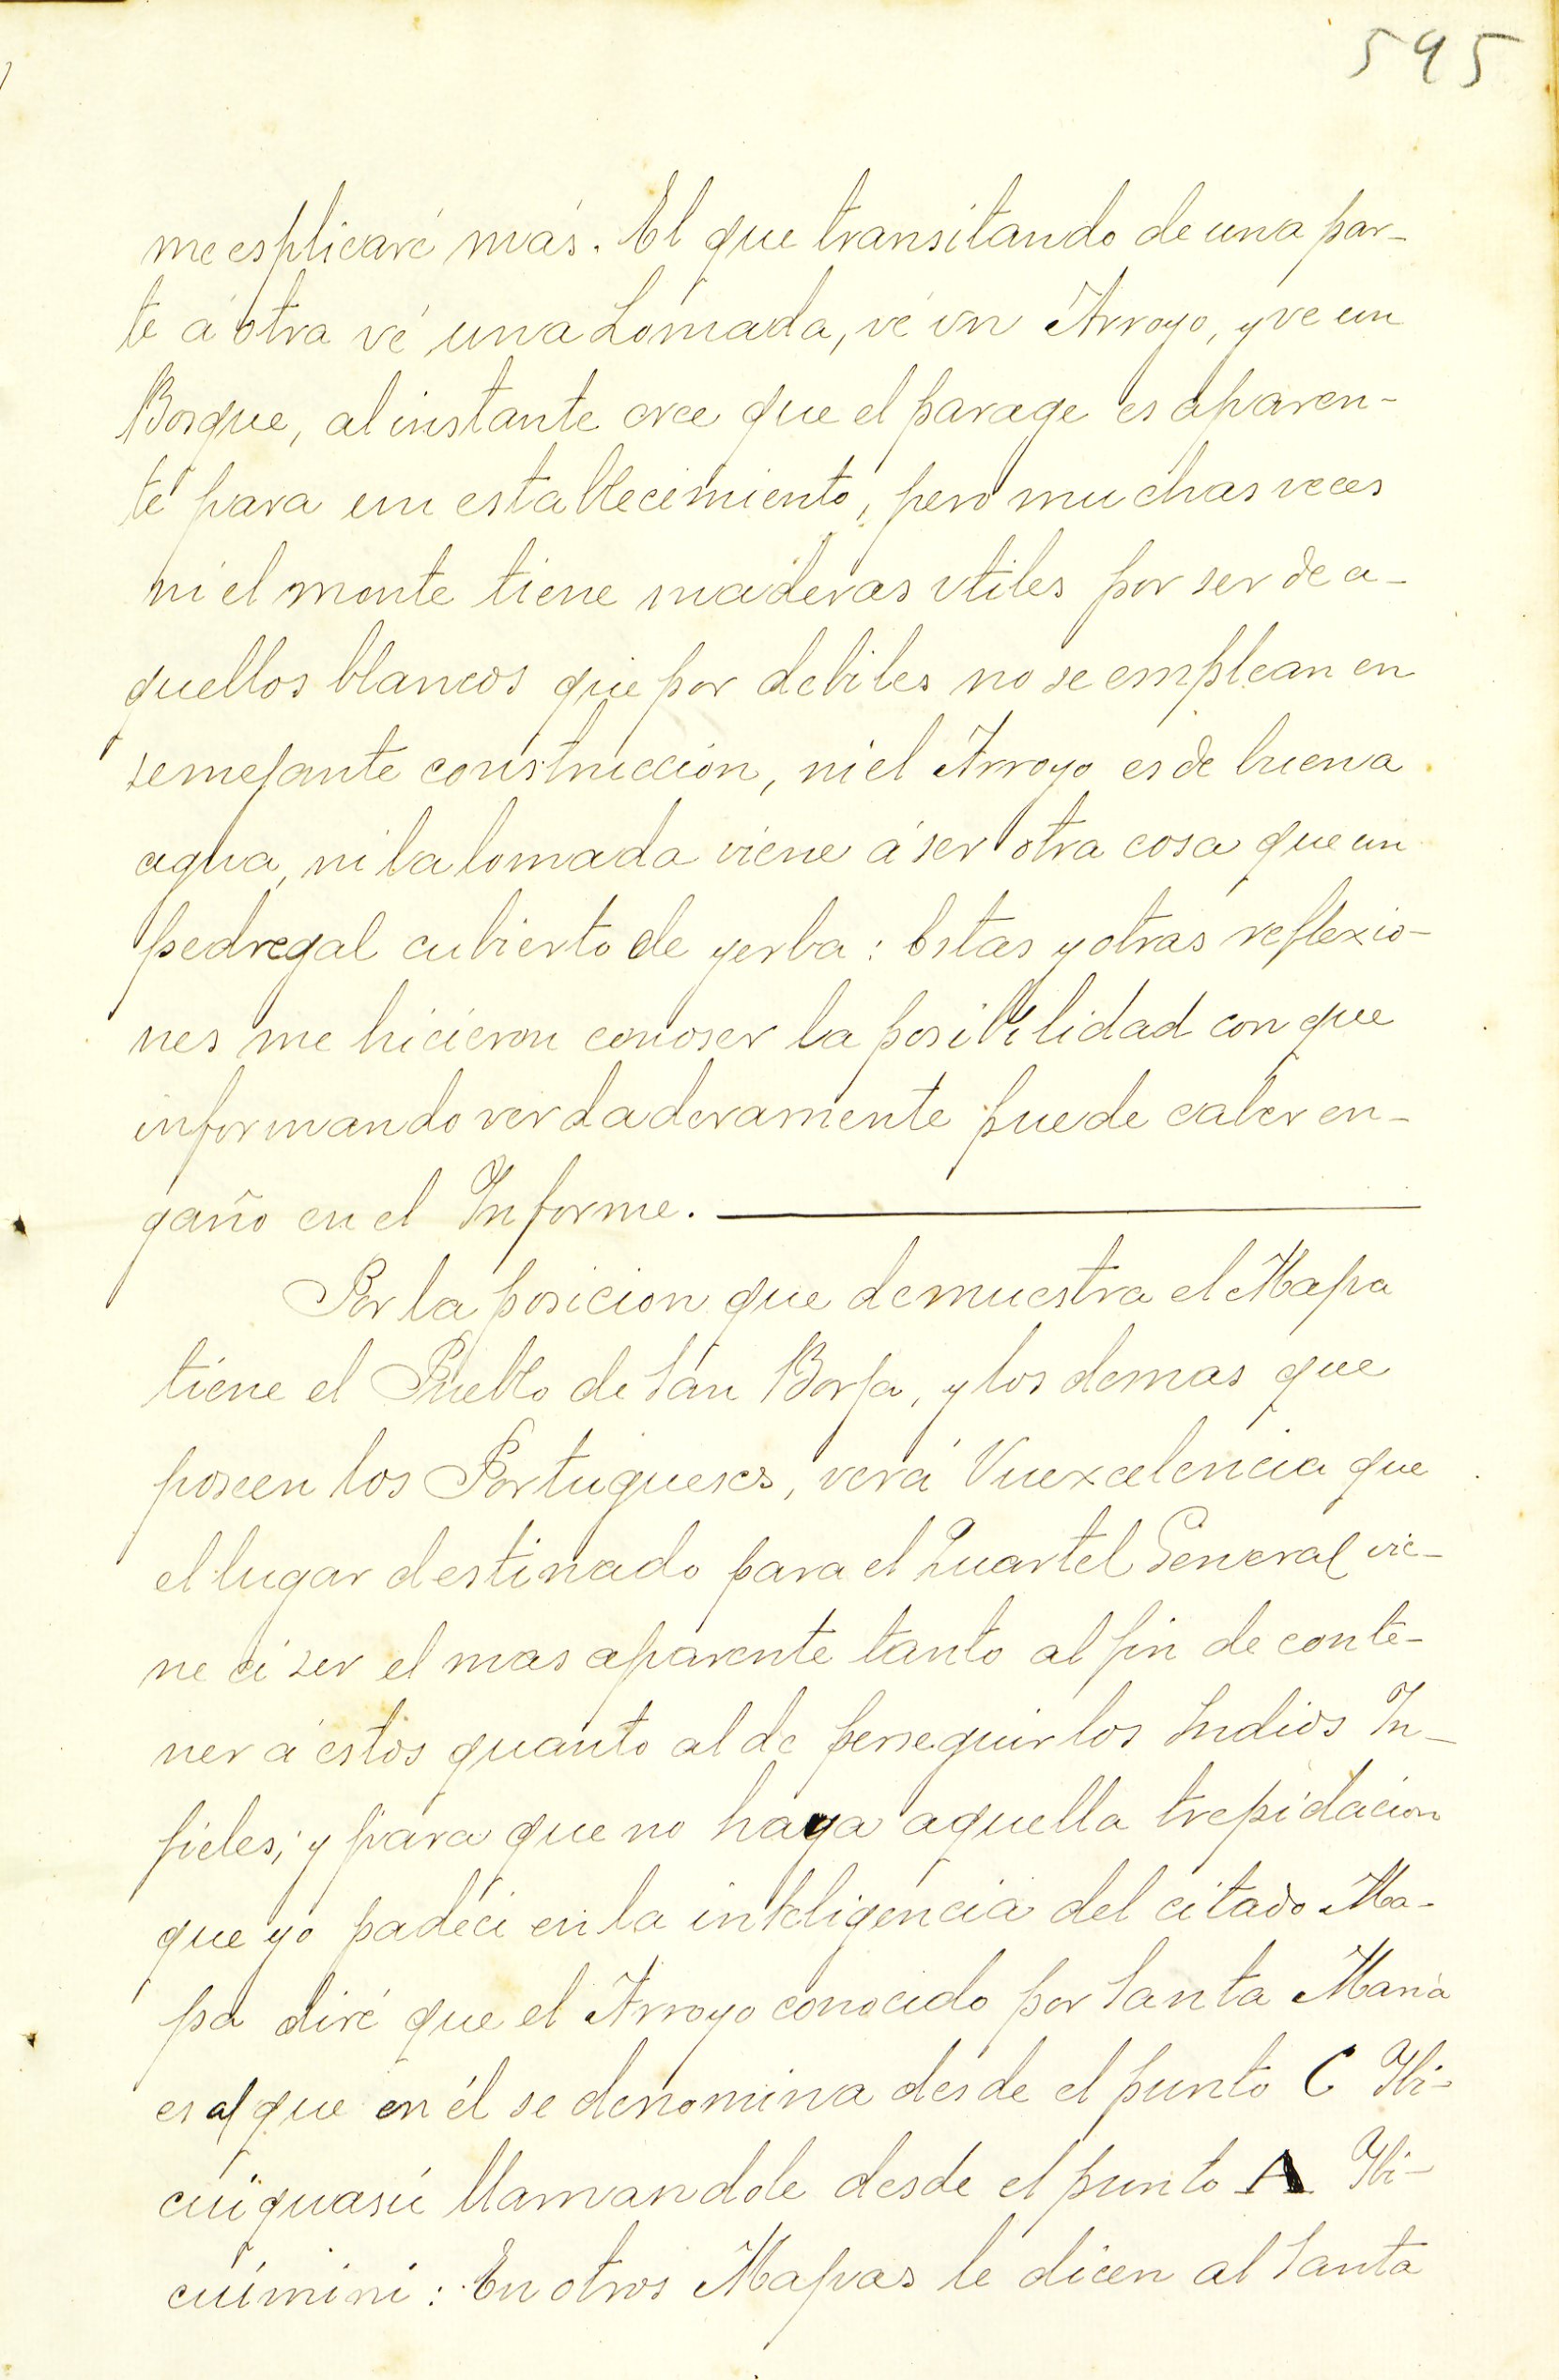 595
me esplicaré más. El que transitando de una par-
te á otra vé una Lomada, vé un Arroyo, y ve un
Bosque, al instante cree que el parage es aparen-
te para un establecimiento, pero muchas veces
ni el monte tiene maderas utiles por ser de a-
quellos blancos que por debiles no se emplean en
semejante construccion, ni el Arroyo es de buena
agua, ni la lomada viene á ser otra cosa que un
pedregal cubierto de yerba: Estas y otras reflexio-
nes me hicieron conoser la posibilidad con que
informando verdaderamente puede caber en-
gaño en el Informe.
Por la posicion que demuestra el Mapa
tiene el Pueblo de San Borja, y los demas que
poseen los Portugueses, verá Vuexcelencia que
el lugar destinado para el Quartel General vie-
ne á ser el mas aparente tanto al fin de conte-
ner á estos quanto al de perseguir los Indios In-
fieles; y para que no haya aquella trepidacion
que yo padeci en la inteligencia del citado Ma-
pa diré que el Arroyo conocido por Santa Maria
es al que en él se denomina desde el punto C Ybi-
cuiguasú llamandole desde el punto A Ybi-
cuimini: En otros Mapas le dicen al Santa